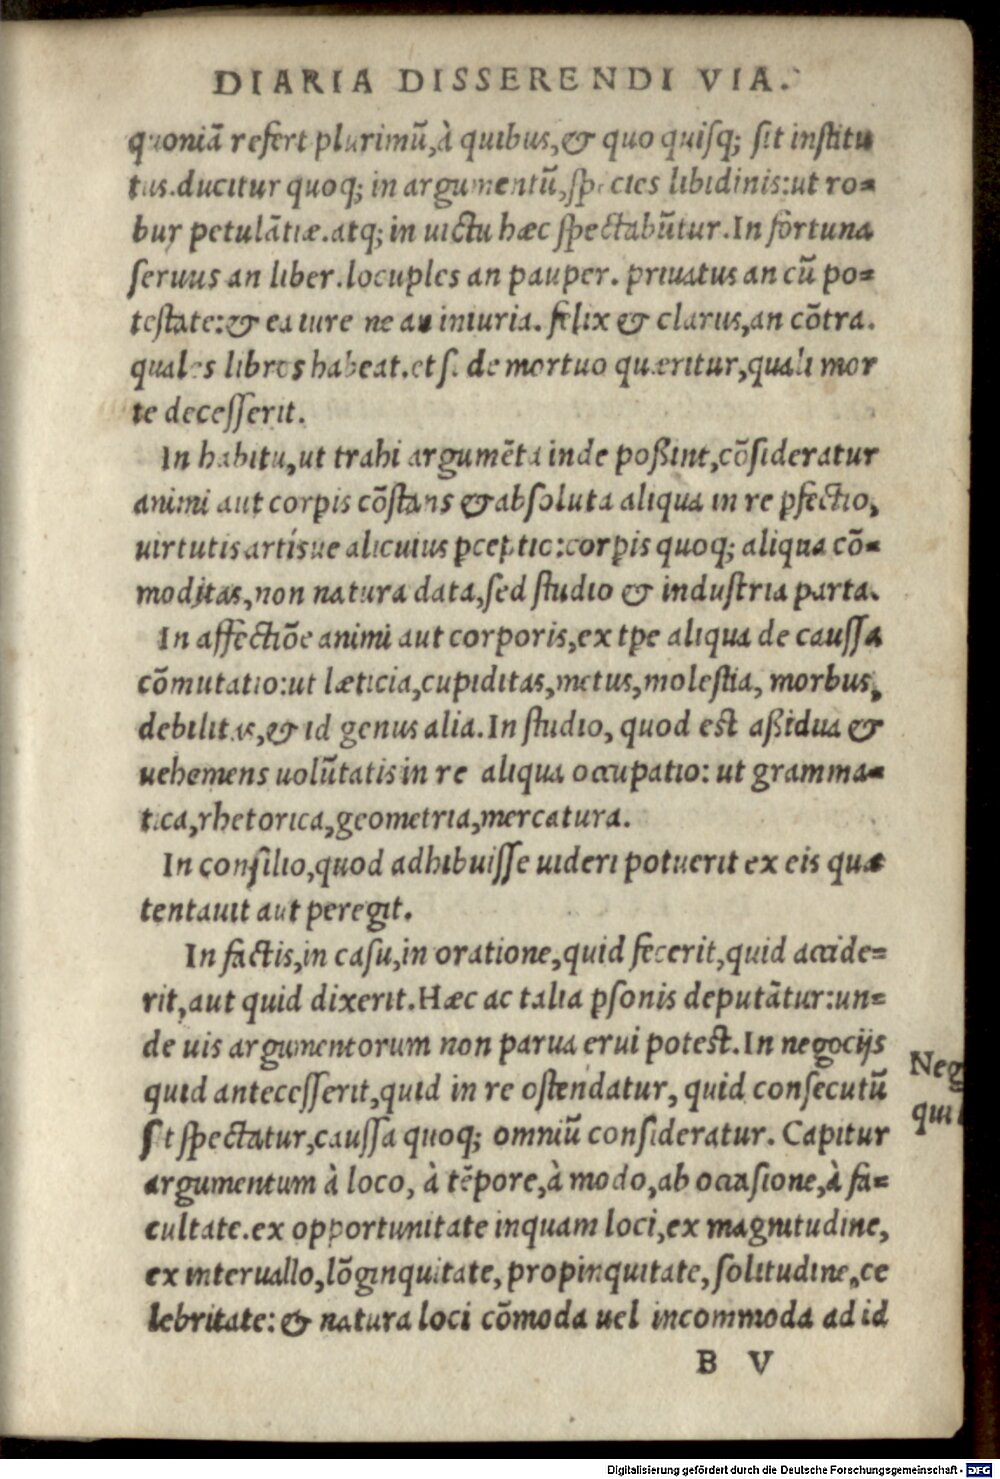 DIARIA DISSERENDI VIA.
quoniā refert plurimū,à quibus,& quo quisq; sit institu
tus.ducitur quoq; in argumentū,species libidinis:ut ro=
bur petulātiæ.atq; in uictu hæc spectabūtur.In fortuna
seruus an liber.locuples an pauper. priuatus an cū po=
testate:& ea iure ne an iniuria. felix & clarus,an cōtra.
quales libros habeat.et s. de mortuo quæritur,quali mor
te decesserit.
In habitu,ut trahi argumēta inde poßint,cōsideratur
animi aut corpis cōstans & absoluta aliqua in re pfectio,
uirtutis artísue alicuius pceptio:corpis quoq; aliqua cō=
moditas,non natura data,sed studio & industria parta.
In affectiōe animi aut corporis,ex tpe aliqua de caussa
cōmutatio:ut læticia,cupiditas,metus,molestia, morbus,
debilitas,& id genus alia.In studio, quod est aßidua &
uehemens uolūtatis in re aliqua occupatio: ut gramma=
tica,rhetorica,geometria,mercatura.
In consilio,quod adhibuisse uideri potuerit ex eis quæ
tentauit aut peregit.
In factis,in casu,in oratione,quid fecerit,quid accide=
rit,aut quid dixerit.Hæc ac talia psonis deputātur:un=
de uis argumentorum non parua erui potest.In negocijs
quid antecesserit,quid in re ostendatur, quid consecutū
sit spectatur,caussa quoq; omniū consideratur. Capitur
argumentum à loco, à tēpore,à modo,ab occasione,à fa=
cultate.ex opportunitate inquam loci,ex magnitudine,
ex interuallo,lōginquitate,propinquitate,solitudine,ce
lebritate:& natura loci cōmoda uel incommoda ad id
Neg
qui
B V
Digitalisierung gefördert durch die Deutsche Forschungsgemeinschaft - DFG